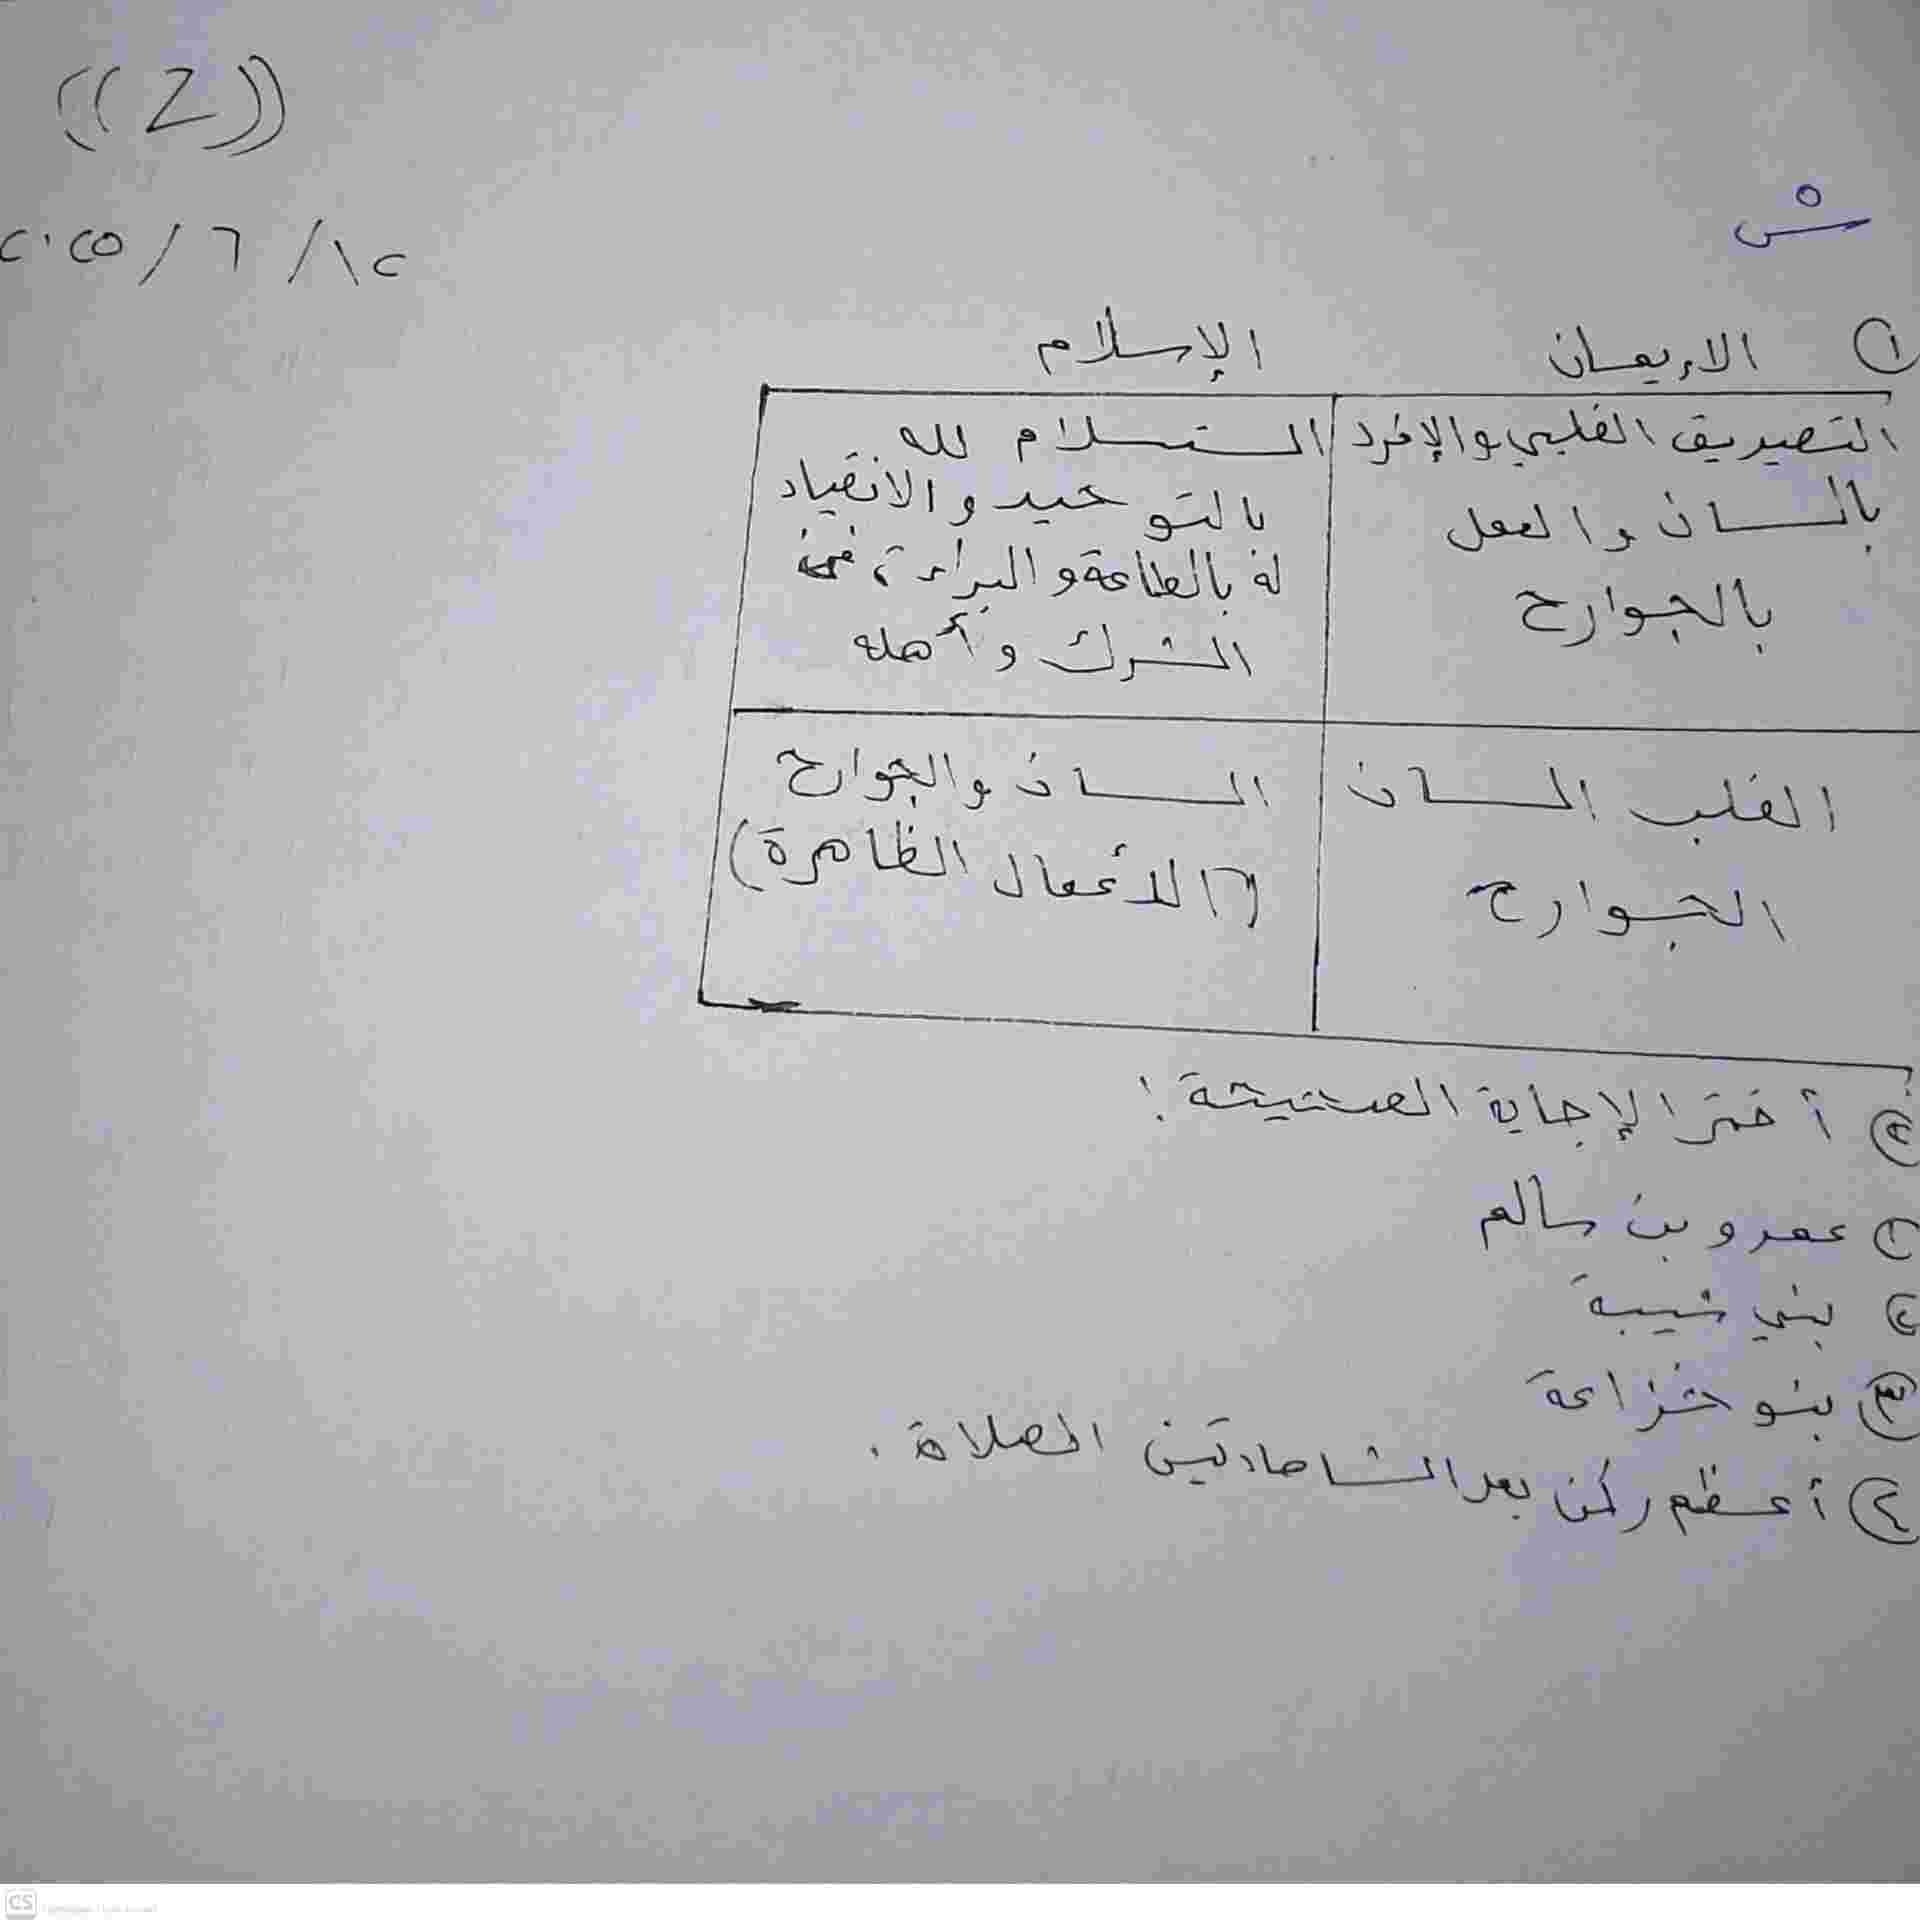 ((2))
ش
٢٠٢٥/٦/١٢
١ الاريمان الإسلام
التصيريق القلبي والإقرد
بالسان والعمل
بالجوارح
الستسلام لله
بالتوحيد والانقياد
له بالطاعة والبراءة من
الشرك وأهله
القلب السان
الجوارح
السان والجوارح
(الأعمال الظاهرة)
أختر الإجابة
١ عمرو بن سالم
٢ بني شيبة
٣ بنو خزاعة
٤ أعظم ركن بعد الشاهادتين الصلاة.